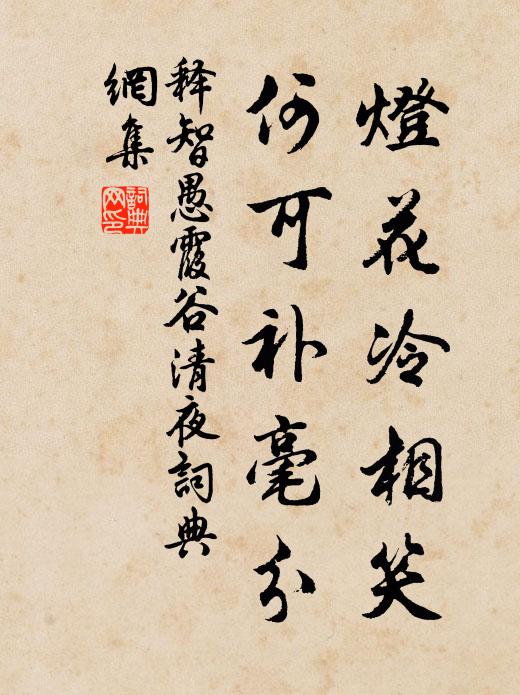 燈花冷相笑
何可补毫分
释智愚霞谷清夜詞典
網集
詞典網印